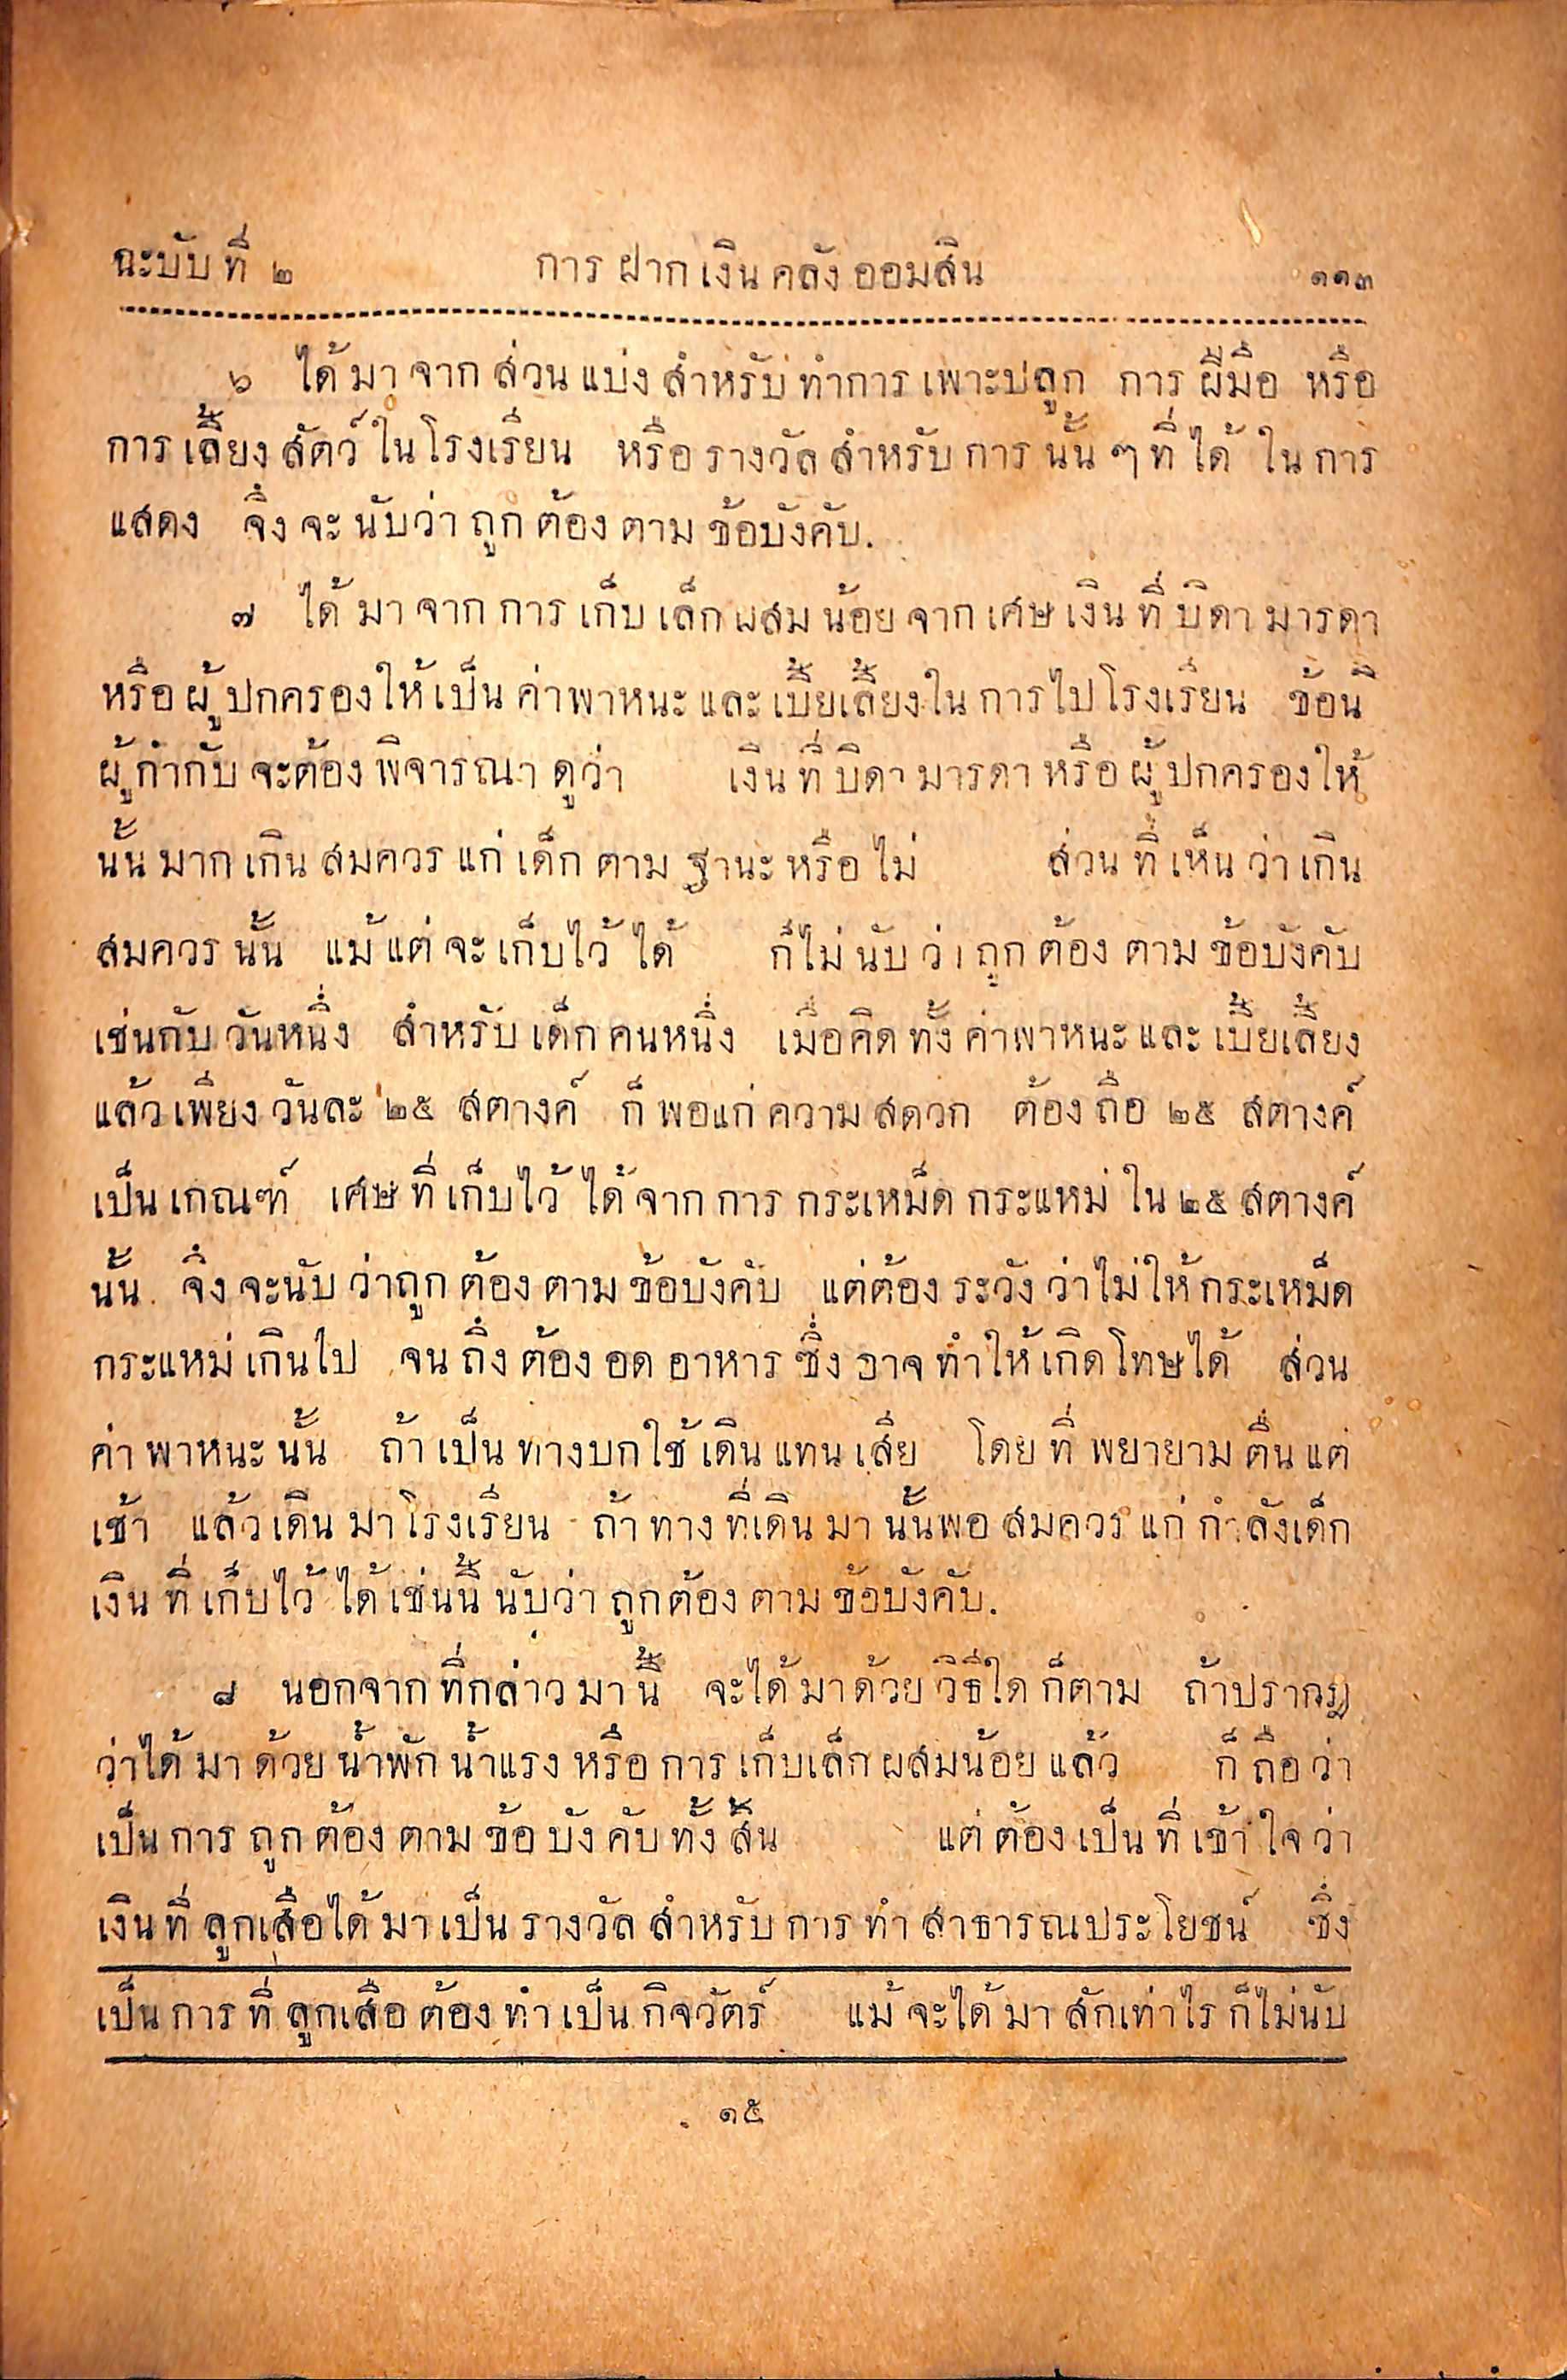 ฉะบับที่ ๒ การฝากเงินคลังออมสิน ๑๑๓
๖ ได้มาจากส่วนแบ่งสำหรับทำการเพาะปลูก การฝีมือ หรือ
การเลี้ยงสัตว์ในโรงเรียน หรือรางวัลสำหรับการนั้น ๆ ที่ได้ ในการ
แสดง จึ่งจะนับว่าถูกต้องตามข้อบังคับ.
๗ ได้มาจากการเก็บเล็กผสมน้อยจากเศษเงินที่บิดามารดา
หรือผู้ปกครองให้เป็นค่าพาหนะและเบี้ยเลี้ยงในการไปโรงเรียน ข้อนี้
ผู้กำกับจะต้องพิจารณาดูว่า เงินที่บิดามารดาหรือผู้ปกครองให้
นั้นมากเกินสมควรแก่เด็กตามฐานะหรือไม่ ส่วนที่เห็นว่าเกิน
สมควรนั้น แม้แต่จะเก็บไว้ได้ ก็ไม่นับว่าถูกต้องตามข้อบังคับ
เช่นกับวันหนึ่ง สำหรับเด็กคนหนึ่ง เมื่อคิดทั้งค่าพาหนะและเบี้ยเลี้ยง
แล้วเพียงวันละ ๒๕ สตางค์ ก็พอแก่ความสดวก ต้องถือ ๒๕ สตางค์
เป็นเกณฑ์ เศษที่เก็บไว้ได้จากการกระเหม็ดกระแหม่ใน ๒๕ สตางค์
นั้น จึ่งจะนับว่าถูกต้องตามข้อบังคับ แต่ต้องระวังว่าไม่ให้กระเหม็ด
กระแหม่เกินไป จนถึงต้องอดอาหารซึ่งอาจทำให้เกิดโทษได้ ส่วน
ค่าพาหนะนั้น ถ้าเป็นทางบกใช้เดินแทนเสีย โดยที่พยายามตื่นแต่
เช้า แล้วเดินมาโรงเรียน ถ้าทางที่เดินมานั้นพอสมควรแก่กำลังเด็ก
เงินที่เก็บไว้ได้เช่นนี้นับว่าถูกต้องตามข้อบังคับ.
๘ นอกจากที่กล่าวมานี้ จะได้มาด้วยวิธีใดก็ตาม ถ้าปรากฎ
ว่าได้มาด้วยน้ำพักน้ำแรงหรือการเก็บเล็กผสมน้อยแล้ว ก็ถือว่า
เป็นการถูกต้องตามข้อบังคับทั้งสิ้น แต่ต้องเป็นที่เข้าใจว่า
เงินที่ลูกเสือได้มาเป็นรางวัลสำหรับการทำสาธารณประโยชน์ ซึ่ง
เป็นการที่ลูกเสือต้องทำเป็นกิจวัตร์ แม้จะได้มาสักเท่าไรก็ไม่นับ
๑๕